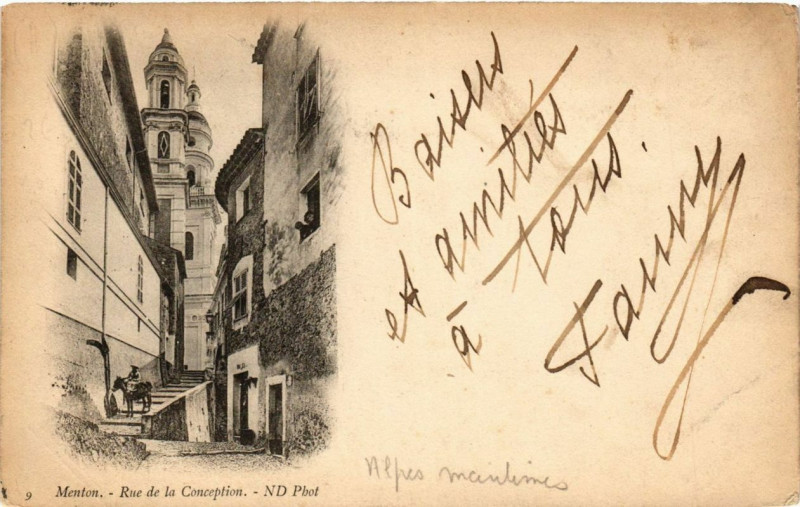 Baisers
et amitiés
à tous.
Fanny
Alpes maritimes
9 Menton. - Rue de la Conception. - ND Phot